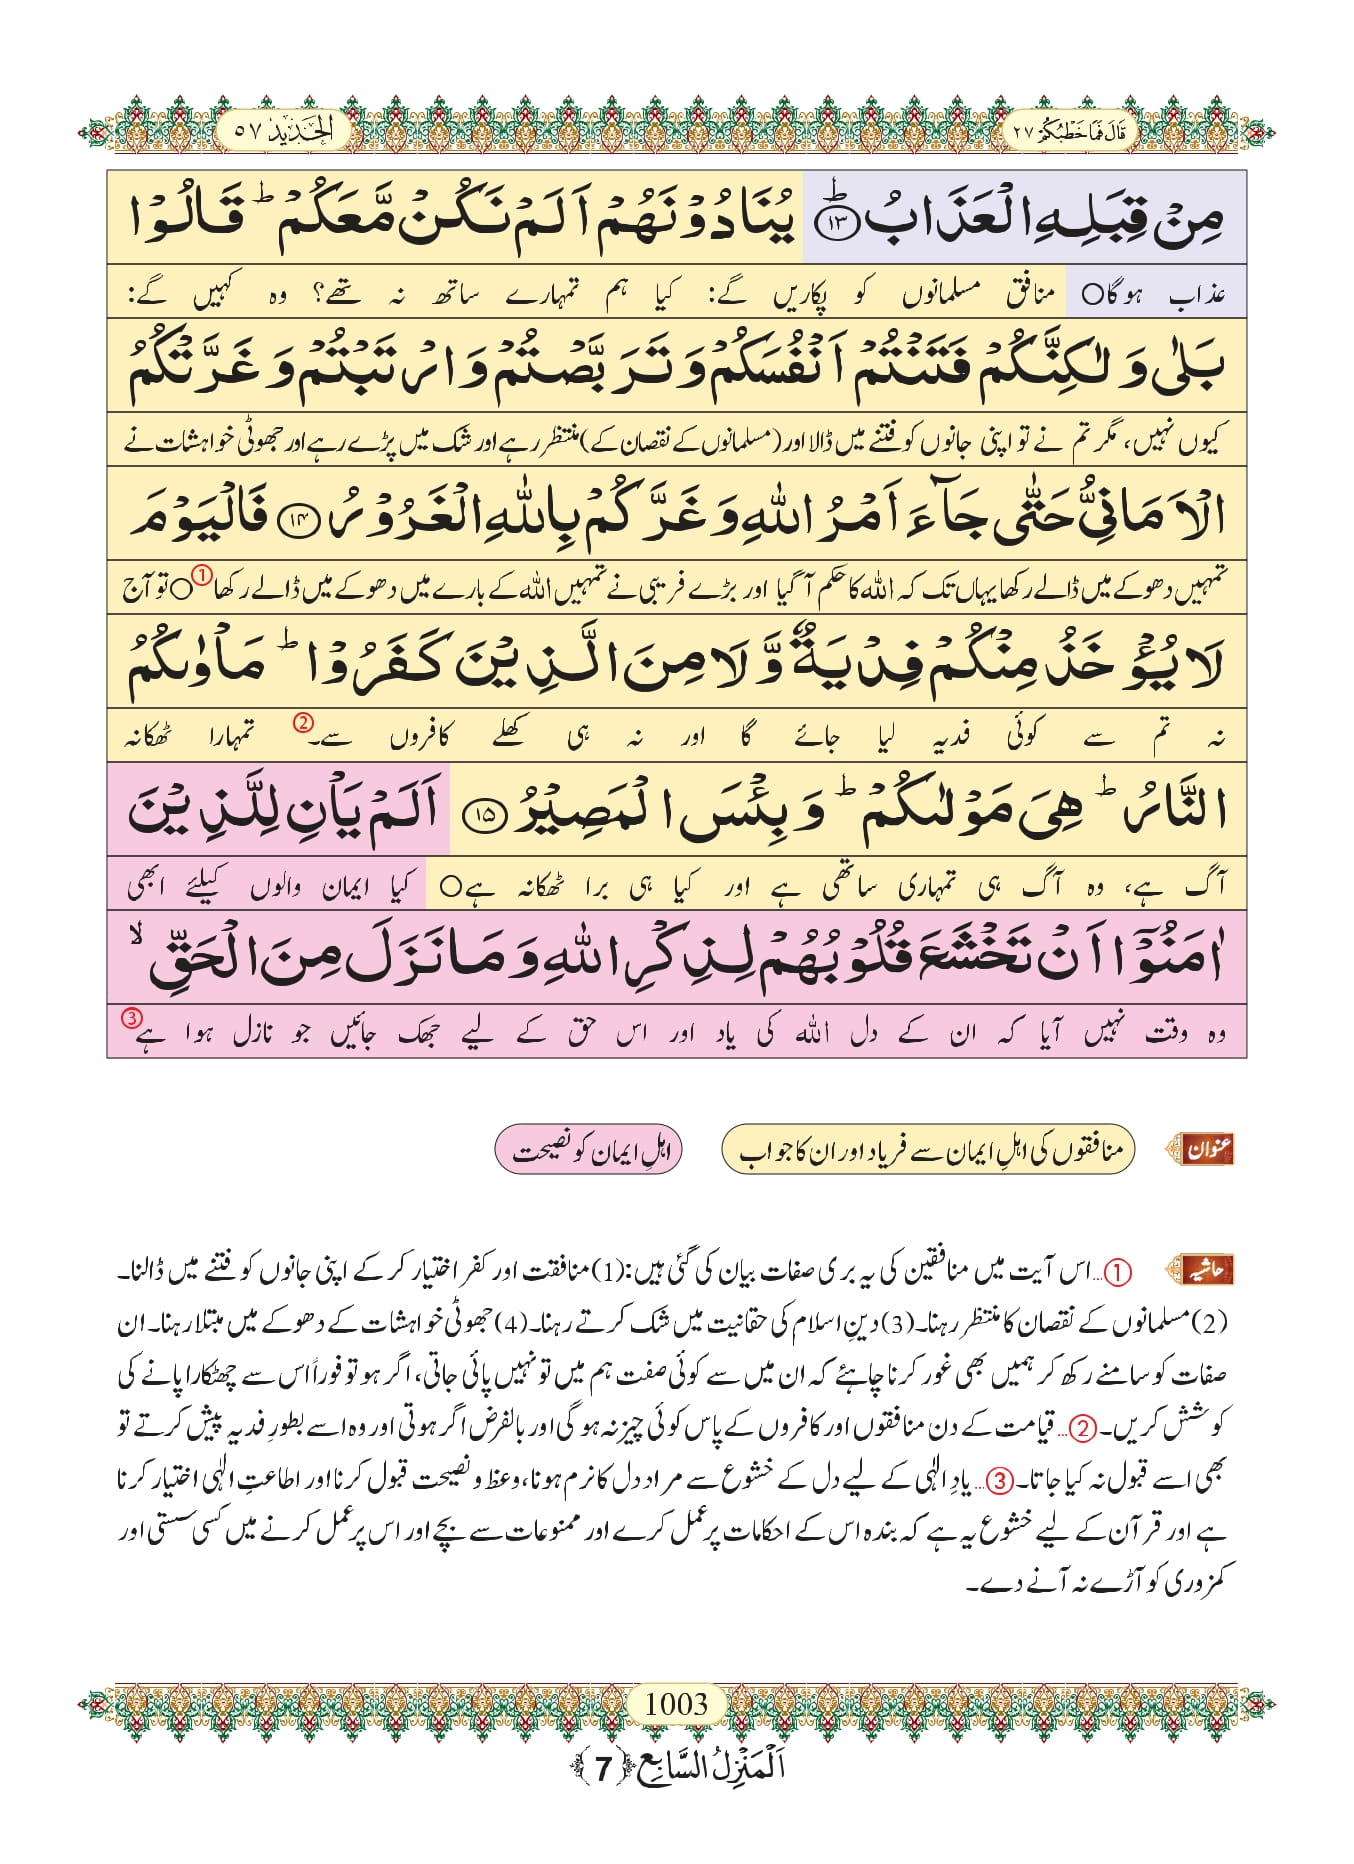 قَالَ فَمَا خَطْبُكُمْ ۲۷
الْحَدِيْد ۵۷
مِنْ قِبَلِهِ الْعَذَابُ ؕ﴿۱۳﴾ يُنَادُوْنَهُمْ اَلَمْ نَكُنْ مَّعَكُمْ ؕ قَالُوْا
عذاب ہوگا○ منافق مسلمانوں کو پکاریں گے: کیا ہم تمہارے ساتھ نہ تھے؟ وہ کہیں گے:
بَلٰى وَلٰكِنَّكُمْ فَتَنْتُمْ اَنْفُسَكُمْ وَتَرَبَّصْتُمْ وَارْتَبْتُمْ وَغَرَّتْكُمُ
کیوں نہیں، مگر تم نے تو اپنی جانوں کو فتنے میں ڈالا اور (مسلمانوں کے نقصان کے) منتظر رہے اور شک میں پڑے رہے اور جھوٹی خواہشات نے
الْاَمَانِيُّ حَتّٰى جَآءَ اَمْرُ اللهِ وَغَرَّكُمْ بِاللهِ الْغَرُوْرُ ﴿۱۴﴾ فَالْيَوْمَ
تمہیں دھوکے میں ڈالے رکھا یہاں تک کہ اللہ کا حکم آگیا اور بڑے فریبی نے تمہیں اللہ کے بارے میں دھوکے میں ڈالے رکھا①○ تو آج
لَا يُؤْخَذُ مِنْكُمْ فِدْيَةٌ وَّلَا مِنَ الَّذِيْنَ كَفَرُوْا ؕ مَاْوٰىكُمُ
نہ تم سے کوئی فدیہ لیا جائے گا اور نہ ہی کھلے کافروں سے۔② تمہارا ٹھکانہ
النَّارُ ؕ هِيَ مَوْلٰىكُمْ ؕ وَبِئْسَ الْمَصِيْرُ ﴿۱۵﴾ اَلَمْ يَاْنِ لِلَّذِيْنَ
آگ ہے، وہ آگ ہی تمہاری ساتھی ہے اور کیا ہی برا ٹھکانہ ہے○ کیا ایمان والوں کیلئے ابھی
اٰمَنُوْۤا اَنْ تَخْشَعَ قُلُوْبُهُمْ لِذِكْرِ اللهِ وَمَا نَزَلَ مِنَ الْحَقِّ ۙ
وہ وقت نہیں آیا کہ ان کے دل اللہ کی یاد اور اس حق کے لیے جھک جائیں جو نازل ہوا ہے③
عنوان منافقوں کی اہلِ ایمان سے فریاد اور ان کا جواب اہلِ ایمان کو نصیحت
حاشیہ ①...اس آیت میں منافقین کی یہ بری صفات بیان کی گئی ہیں:(1)منافقت اور کفر اختیار کر کے اپنی جانوں کو فتنے میں ڈالنا۔
(2)مسلمانوں کے نقصان کا منتظر رہنا۔(3)دینِ اسلام کی حقانیت میں شک کرتے رہنا۔(4)جھوٹی خواہشات کے دھوکے میں مبتلا رہنا۔ان
صفات کو سامنے رکھ کر ہمیں بھی غور کرنا چاہئے کہ ان میں سے کوئی صفت ہم میں تو نہیں پائی جاتی، اگر ہو تو فوراً اس سے چھٹکارا پانے کی
کوشش کریں۔②... قیامت کے دن منافقوں اور کافروں کے پاس کوئی چیز نہ ہوگی اور بالفرض اگر ہوتی اور وہ اسے بطورِ فدیہ پیش کرتے تو
بھی اسے قبول نہ کیا جاتا۔③... یادِ الٰہی کے لیے دل کے خشوع سے مراد دل کا نرم ہونا،وعظ و نصیحت قبول کرنا اور اطاعتِ الٰہی اختیار کرنا
ہے اور قرآن کے لیے خشوع یہ ہے کہ بندہ اس کے احکامات پر عمل کرے اور ممنوعات سے بچے اور اس پر عمل کرنے میں کسی سستی اور
کمزوری کو آڑے نہ آنے دے۔
1003
اَلْمَنْزِلُ السَّابِع ﴿7﴾